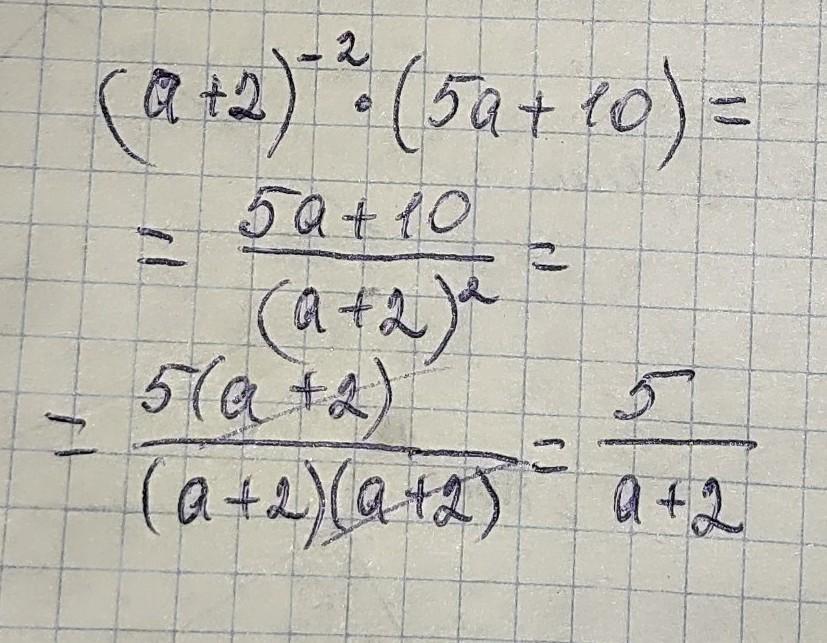 (a+2)⁻²·(5a+10)=
= (5a+10)/(a+2)² =
= 5(a+2)/(a+2)(a+2) = 5/a+2